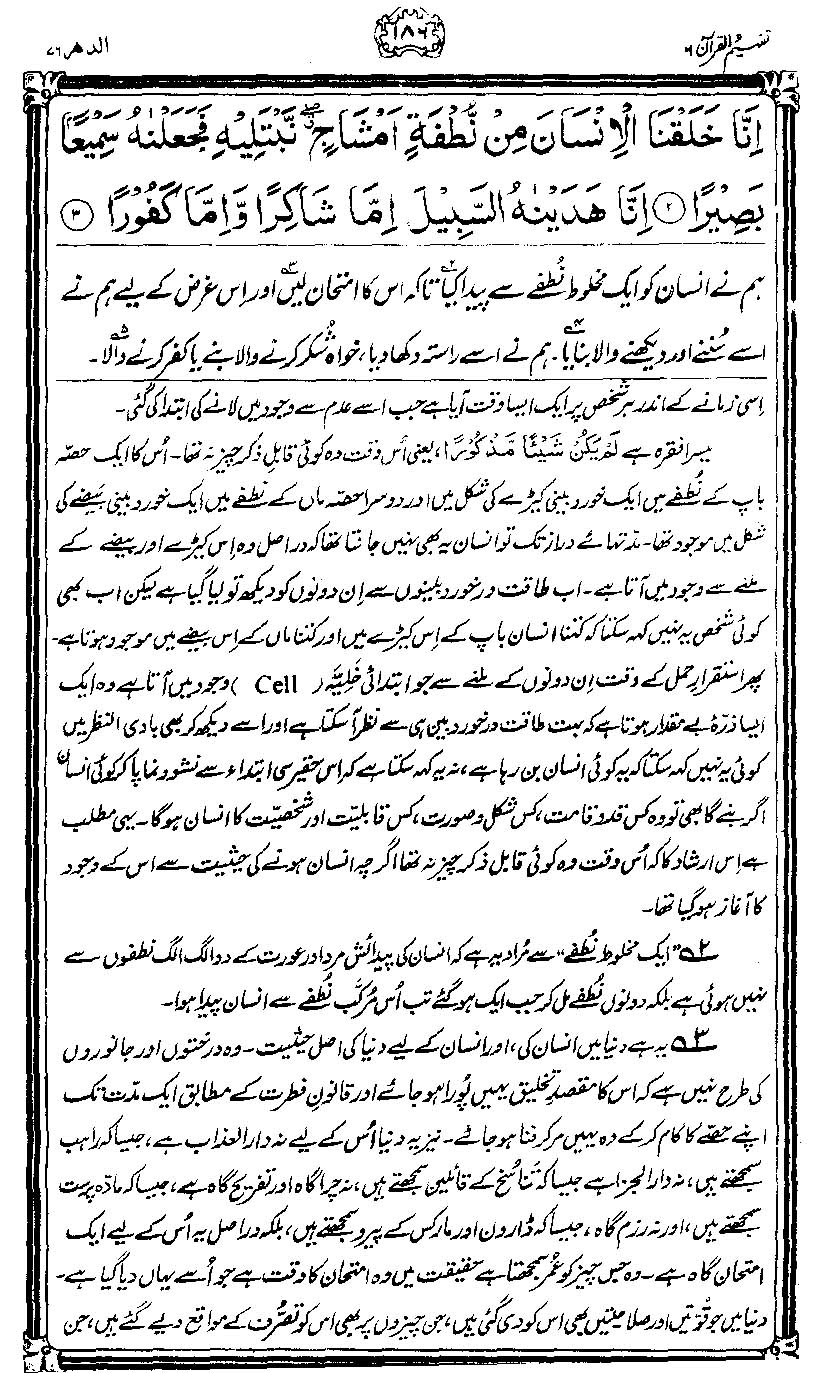 تفہیم القرآن ۶
۱۸۶
الدھر ۷۶
اِنَّا خَلَقْنَا الْاِنْسَانَ مِنْ نُّطْفَةٍ اَمْشَاجٍ ۖ نَّبْتَلِيْهِ فَجَعَلْنٰهُ سَمِيْعًا
بَصِيْرًا ۝۲ اِنَّا هَدَيْنٰهُ السَّبِيْلَ اِمَّا شَاكِرًا وَّاِمَّا كَفُوْرًا ۝۳
ہم نے انسان کو ایک مخلوط نُطفے سے پیدا کیا۲ تاکہ اس کا امتحان لیں۳ اور اِس غرض کے لیے ہم نے
اسے سُننے اور دیکھنے والا بنایا۴۔ ہم نے اسے راستہ دکھا دیا، خواہ شکر کرنے والا بنے یا کفر کرنے والا۵۔
اِسی زمانے کے اندر ہر شخص پر ایک ایسا وقت آیا ہے جب اسے عدم سے وجود میں لانے کی ابتدا کی گئی۔
تیسرا فقرہ ہے لَمْ يَكُنْ شَيْئًا مَّذْكُوْرًا، یعنی اُس وقت وہ کوئی قابلِ ذکر چیز نہ تھا۔ اُس کا ایک حصہ
باپ کے نُطفے میں ایک خوردبینی کیڑے کی شکل میں اور دوسرا حصہ ماں کے نطفے میں ایک خوردبینی بیضے کی
شکل میں موجود تھا۔ مدتہائے دراز تک تو انسان یہ بھی نہیں جانتا تھا کہ دراصل وہ اِس کیڑے اور بیضے کے
ملنے سے وجود میں آتا ہے۔ اب طاقت ور خوردبینوں سے اِن دونوں کو دیکھ تو لیا گیا ہے لیکن اب بھی
کوئی شخص یہ نہیں کہہ سکتا کہ کتنا انسان باپ کے اِس کیڑے میں اور کتنا ماں کے اِس بیضے میں موجود ہوتا ہے۔
پھر استقرارِ حمل کے وقت اِن دونوں کے ملنے سے جو ابتدائی خَلِیَّہ (Cell) وجود میں آتا ہے وہ ایک
ایسا ذرّۂ بے مقدار ہوتا ہے کہ بہت طاقت ور خوردبین ہی سے نظر آ سکتا ہے اور اسے دیکھ کر بھی بادی النظر میں
کوئی یہ نہیں کہہ سکتا کہ یہ کوئی انسان بن رہا ہے، نہ یہ کہہ سکتا ہے کہ اس حقیر سی ابتداء سے نشوونما پا کر کوئی انسان
اگر بنے گا بھی تو وہ کس قد و قامت، کس شکل و صورت، کس قابلیّت اور شخصیّت کا انسان ہوگا۔ یہی مطلب
ہے اِس ارشاد کا کہ اُس وقت وہ کوئی قابل ذکر چیز نہ تھا اگرچہ انسان ہونے کی حیثیت سے اس کے وجود
کا آغاز ہو گیا تھا۔
۲ "ایک مخلوط نُطفے" سے مُراد یہ ہے کہ انسان کی پیدائش مرد اور عورت کے دو الگ الگ نطفوں سے
نہیں ہوئی ہے بلکہ دونوں نُطفے مل کر جب ایک ہو گئے تب اُس مُرکَّب نُطفے سے انسان پیدا ہوا۔
۳ یہ ہے دنیا میں انسان کی، اور انسان کے لیے دنیا کی اصل حیثیت۔ وہ درختوں اور جانوروں
کی طرح نہیں ہے کہ اس کا مقصدِ تخلیق یہیں پُورا ہو جائے اور قانونِ فطرت کے مطابق ایک مدّت تک
اپنے حصّے کا کام کر کے وہ یہیں مر کر فنا ہو جائے۔ نیز یہ دنیا اُس کے لیے نہ دارالعذاب ہے، جیسا کہ راہب
سمجھتے ہیں، نہ دارالجزا ہے جیسا کہ تَناسُخ کے قائلین سمجھتے ہیں، نہ چراگاہ اور تفریح گاہ ہے، جیسا کہ مادّہ پرست
سمجھتے ہیں، اور نہ رزم گاہ، جیسا کہ ڈارون اور مارکس کے پیرو سمجھتے ہیں، بلکہ دراصل یہ اُس کے لیے ایک
امتحان گاہ ہے۔ وہ جس چیز کو عُمر سمجھتا ہے حقیقت میں وہ امتحان کا وقت ہے جو اُسے یہاں دیا گیا ہے۔
دنیا میں جو قُوّتیں اور صلاحیّتیں بھی اس کو دی گئی ہیں، جن چیزوں پر بھی اس کو تصرُّف کے مواقع دیے گئے ہیں، جن